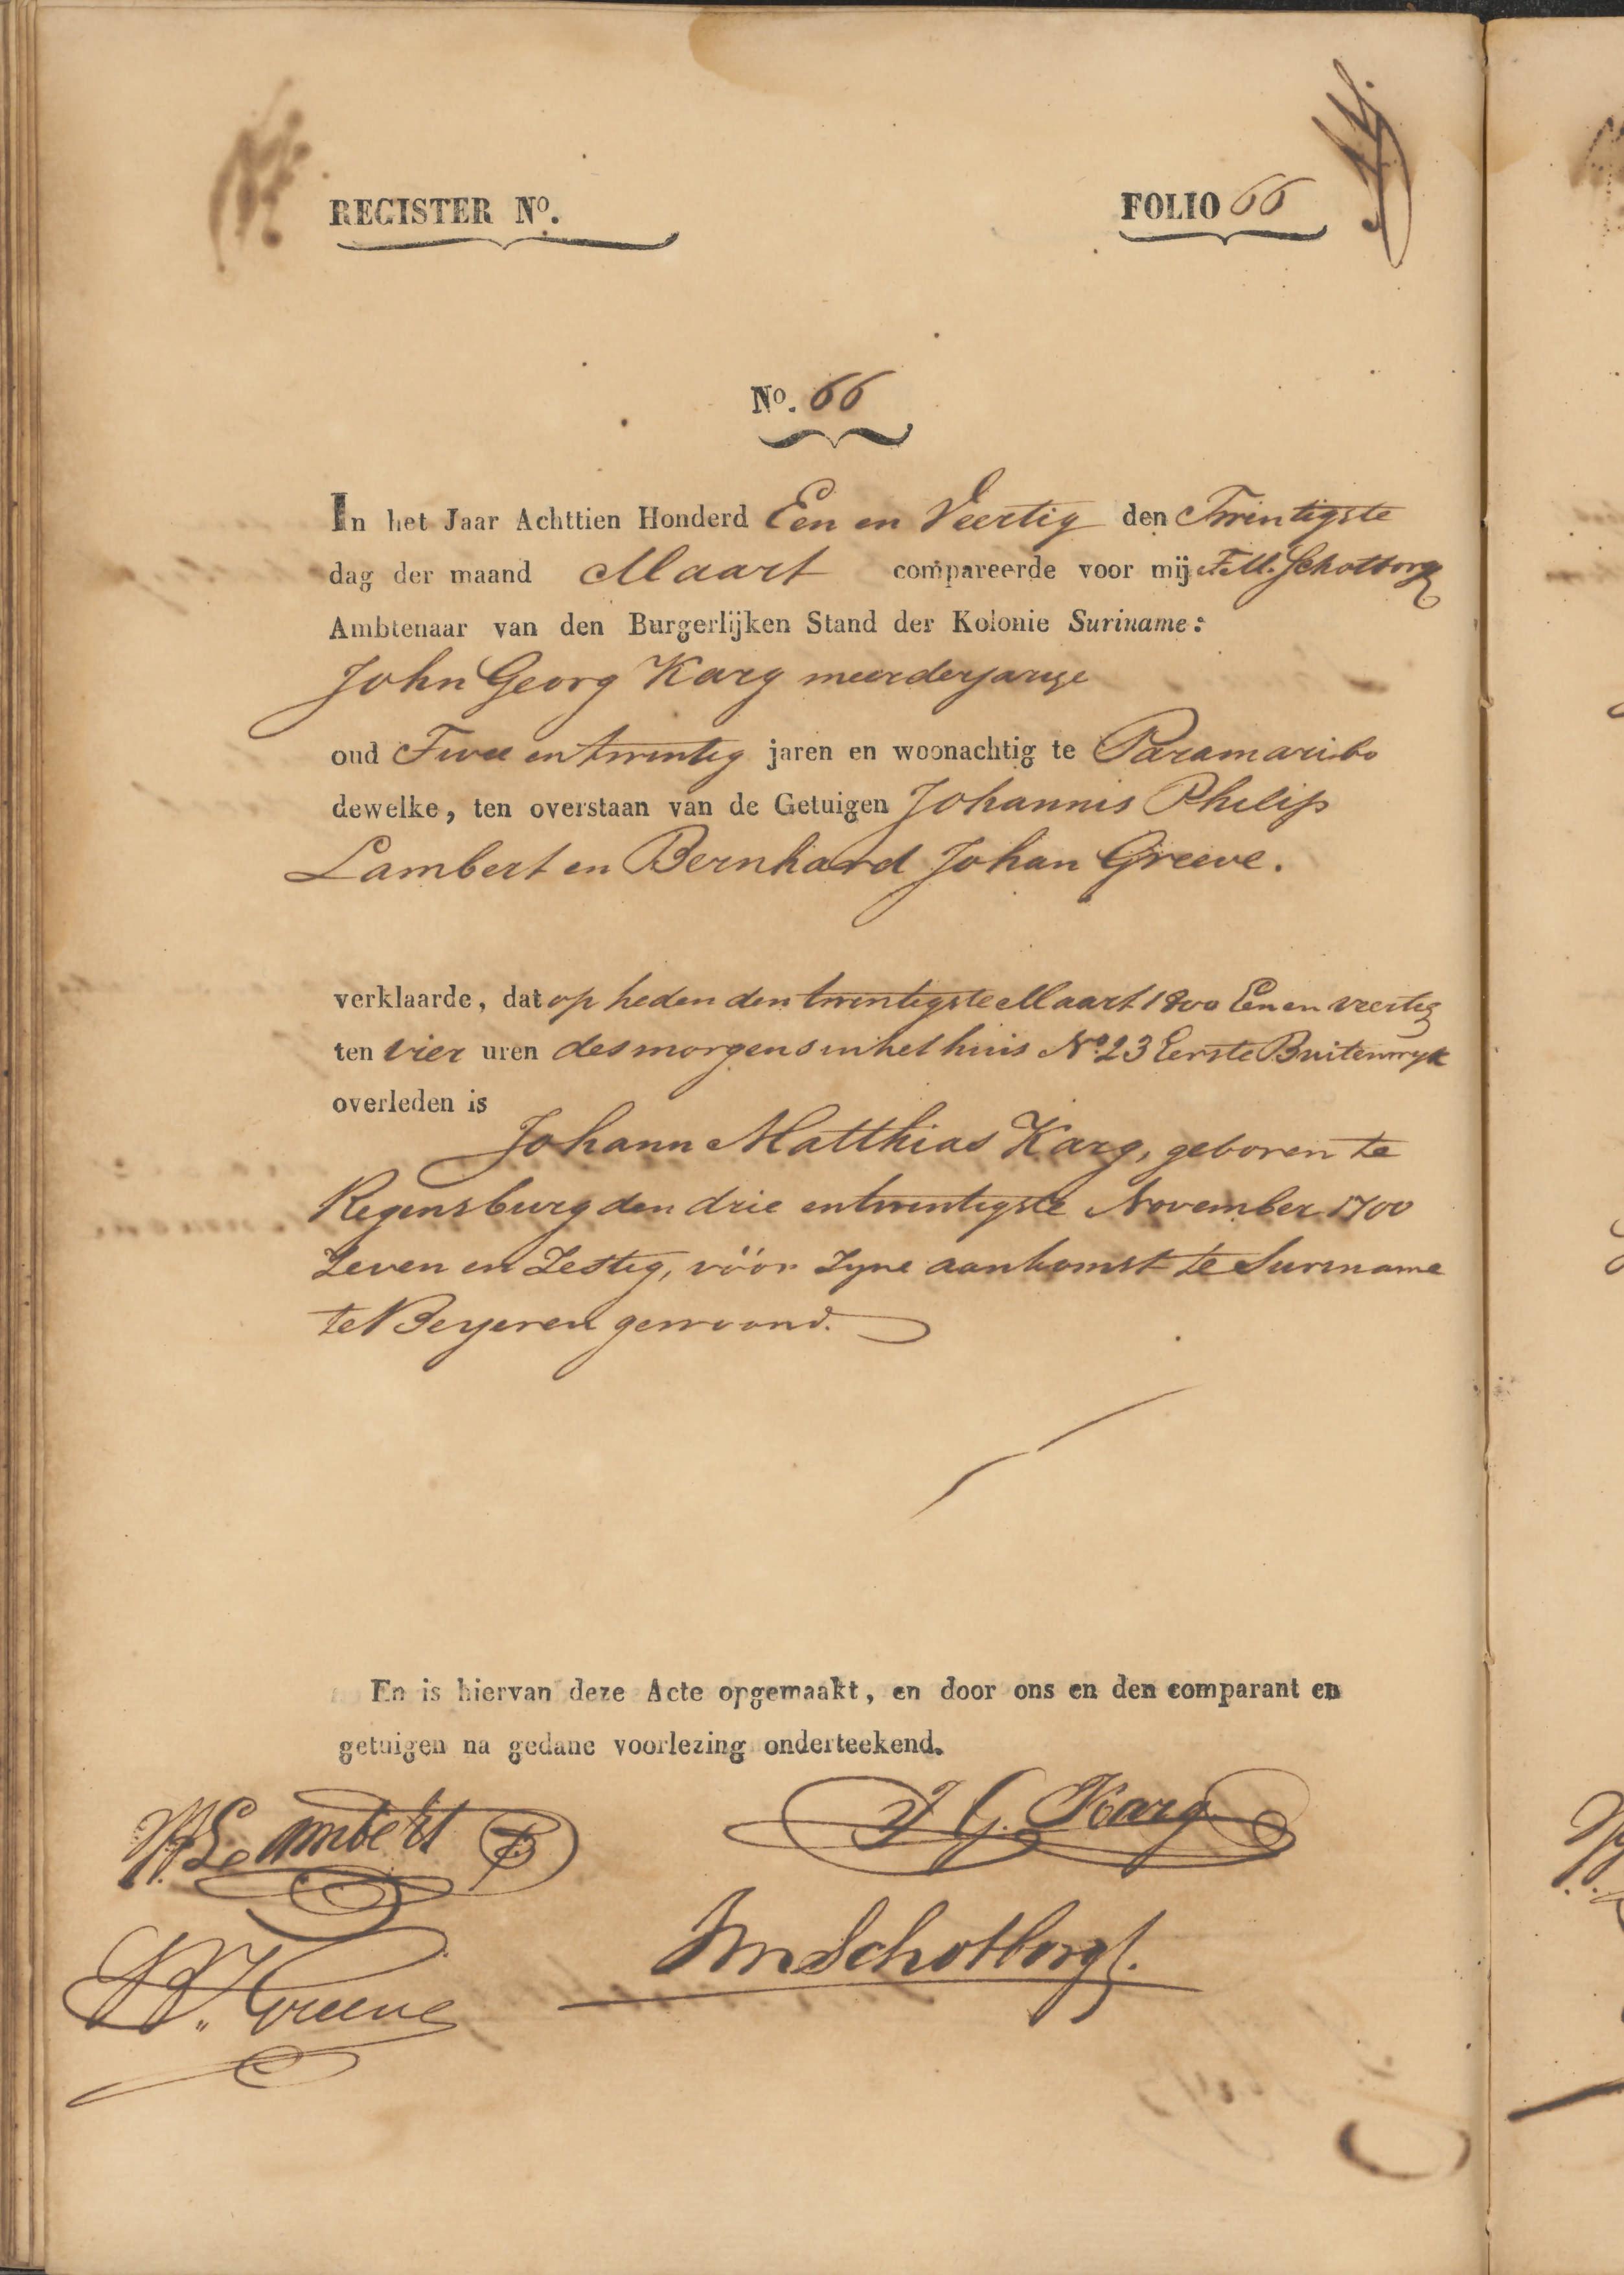 REGISTER No.
FOLIO 66
No. 66
In het Jaar Achttien Honderd Een en Veertig den Twintigste
dag der maand Maart compareerde voor mij Schotborg
Ambtenaar van den Burgerlijken Stand der Kolonie Suriname:
John Georg Karg meerderjarige
oud Twee en twintig jaren en woonachtig te Paramaribo
dewelke, ten overstaan van de Getuigen Johannis Philip
Lambert en Bernhard Johan Greeve.
verklaarde, dat op heden den twintigste Maart 1800 Een en veertig
ten vier uren des morgens in het huis No. 23 Eerste Buitenwyk
overleden is
Johann Matthias Karg, geboren te
Regensburg den drie en twintigste November 1700
Zeven en Zestig, vöör Zyne aankomst te Suriname
te Beyeren gewoond.
En is hiervan deze Acte opgemaakt, en door ons en den comparant en
getuigen na gedane voorlezing onderteekend.
Lambert
J G. Karg
Schotborg
Greeve